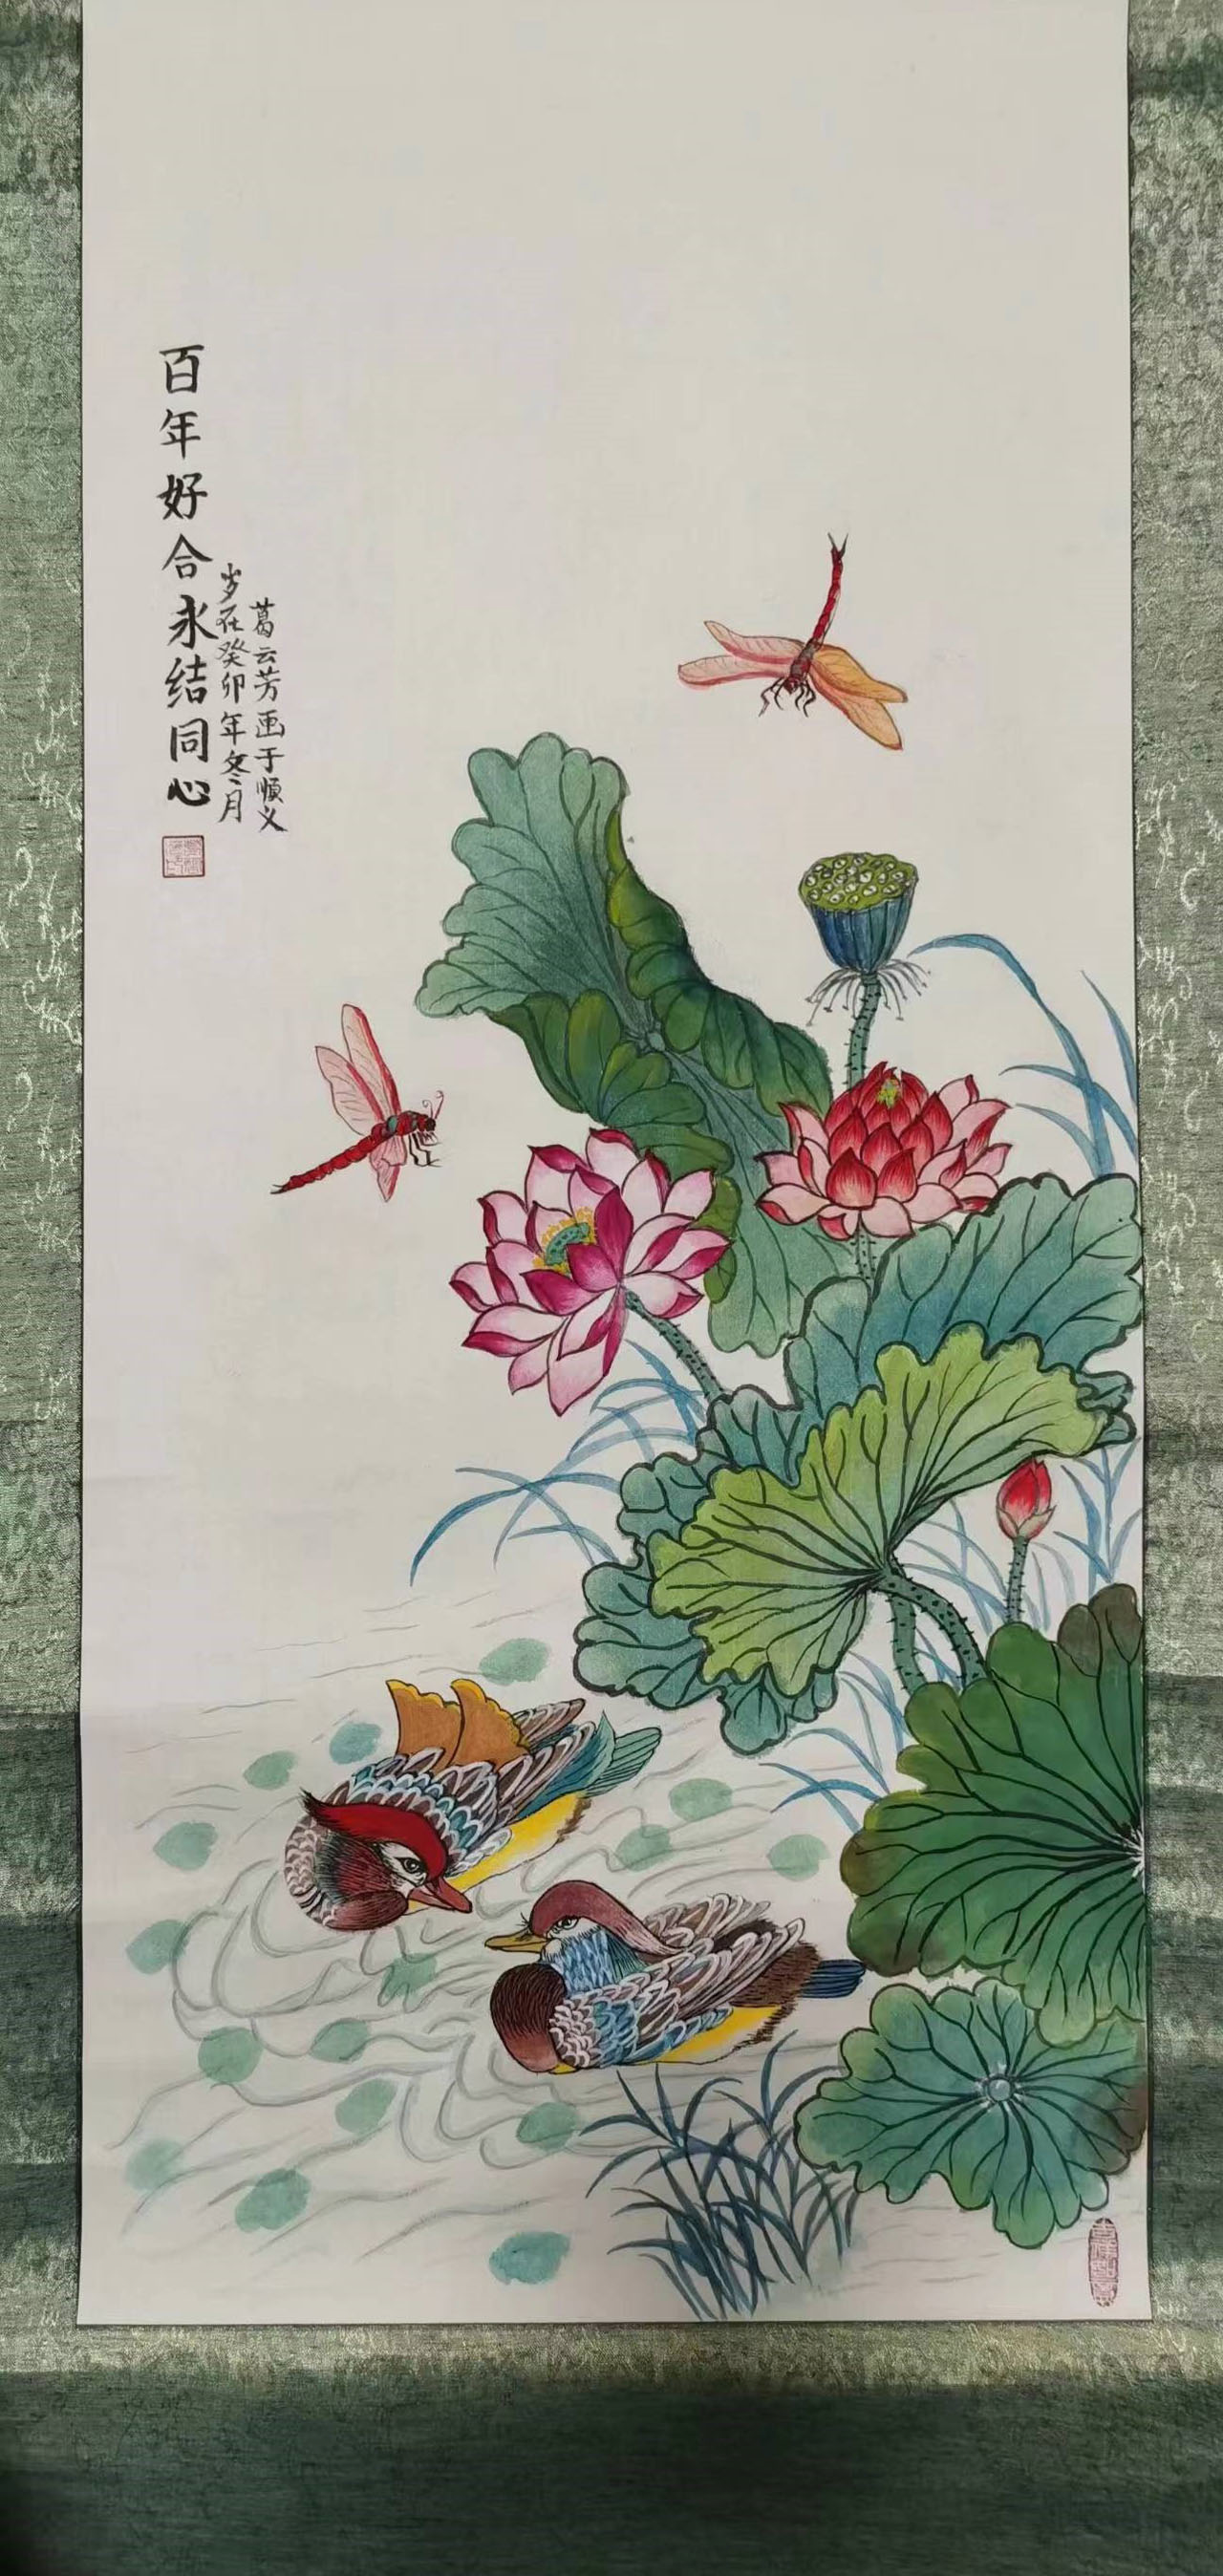 百年好合永结同心
岁在癸卯年冬月
葛云芳画于顺义
吉祥如意